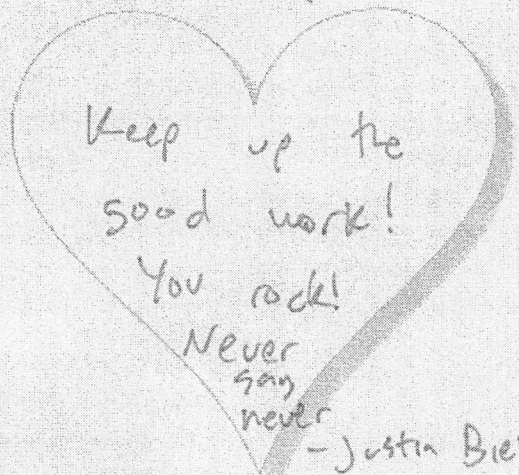 Keep up the
good work!
You rock!
Never
say
never
- Justin Bie